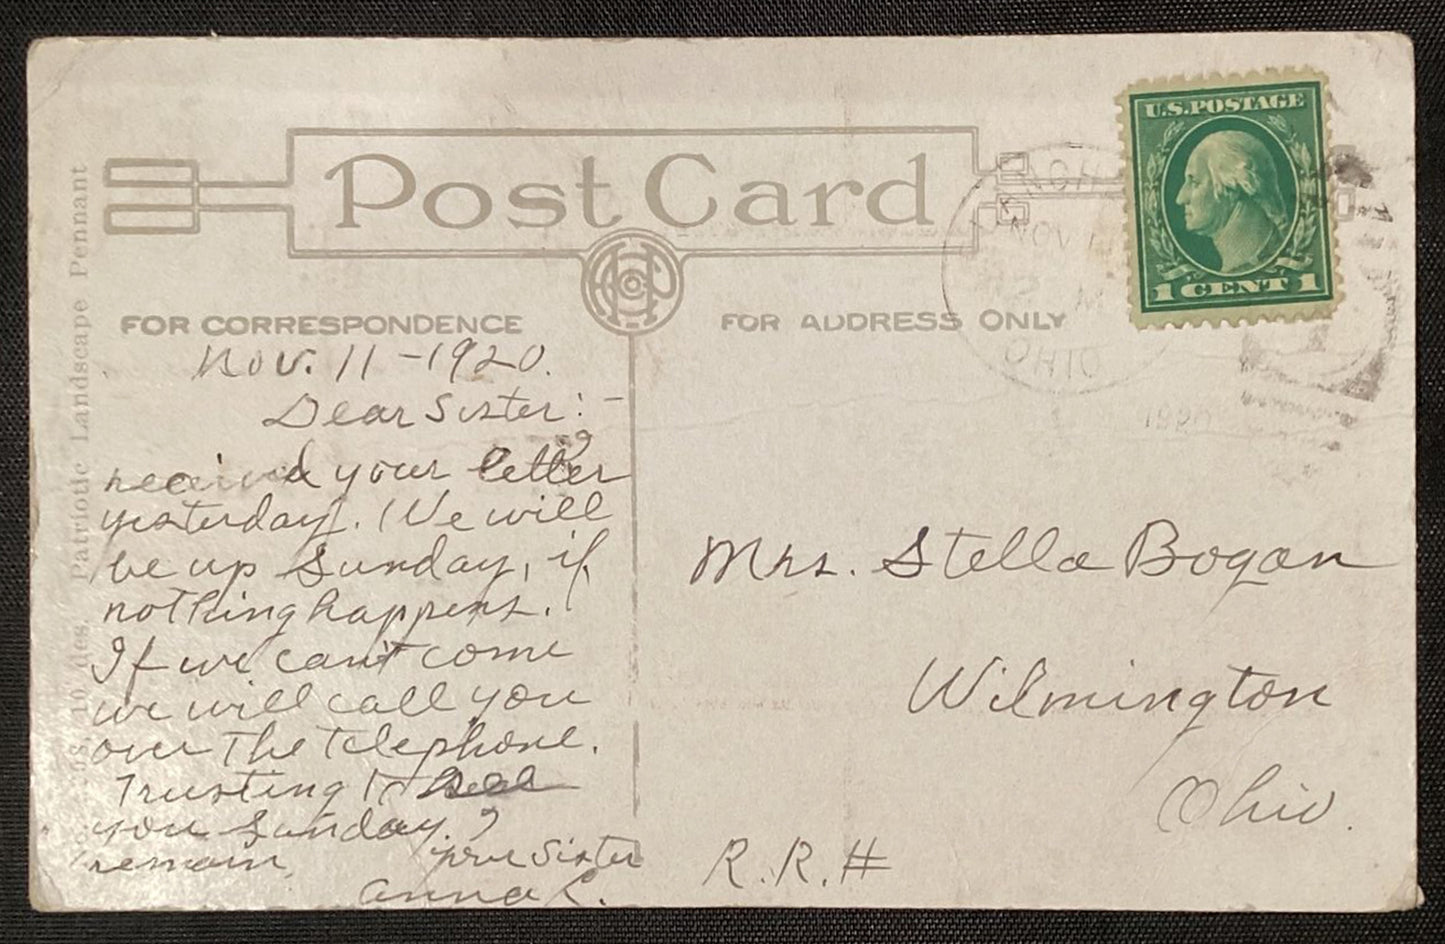 Post Card
FOR CORRESPONDENCE
FOR ADDRESS ONLY
U.S. POSTAGE
1 CENT 1
NOV
M
OHIO
Patriotic Landscape Pennant
10 des.
Nov. 11 - 1920.
Dear Sister:-
received your letter
yesterday. We will
be up Sunday, if
nothing happens.
If we can't come
we will call you
over the telephone.
Trusting to see
you Sunday. I
remain,
your Sister
Anna C.
Mrs. Stella Bogan
Wilmington
Ohio.
R.R.#